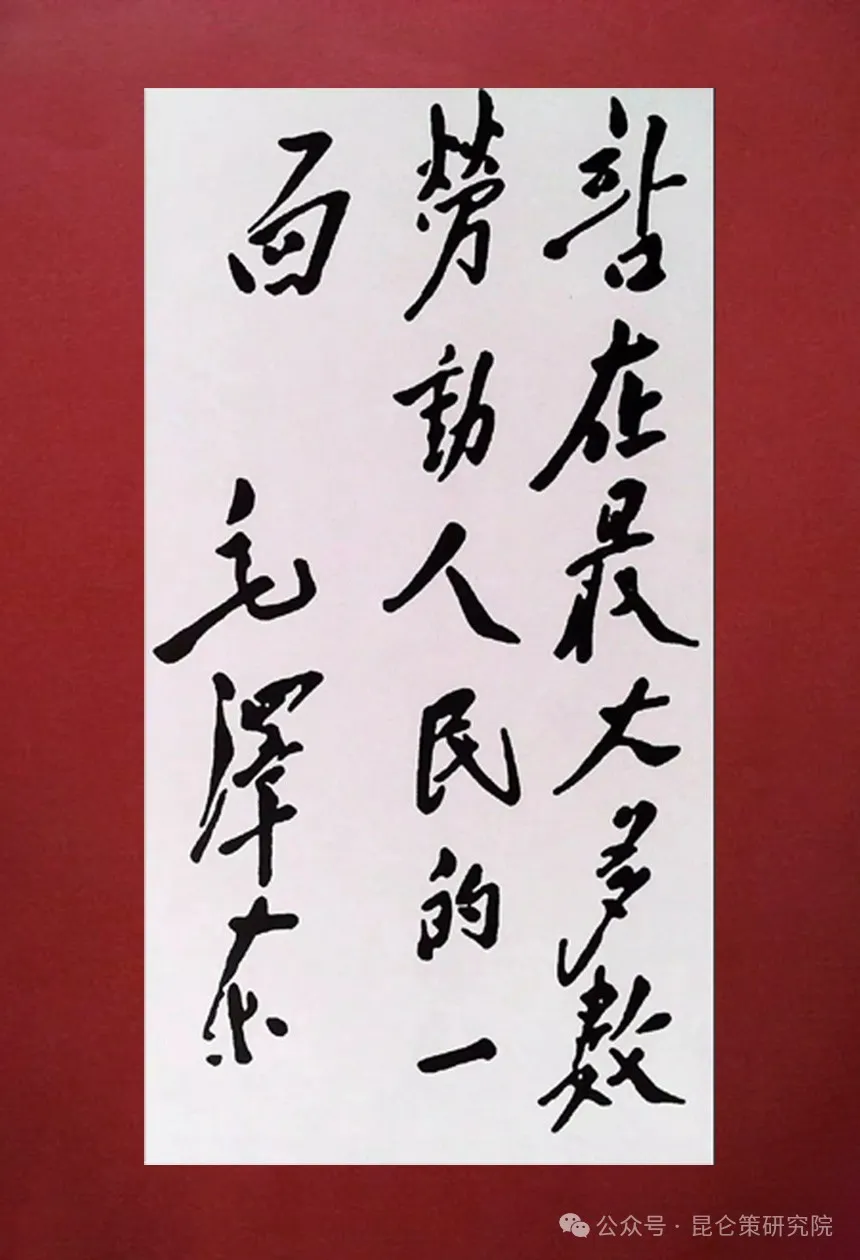 站在最大多數
勞動人民的一
面
毛澤东
公众号·昆仑策研究院